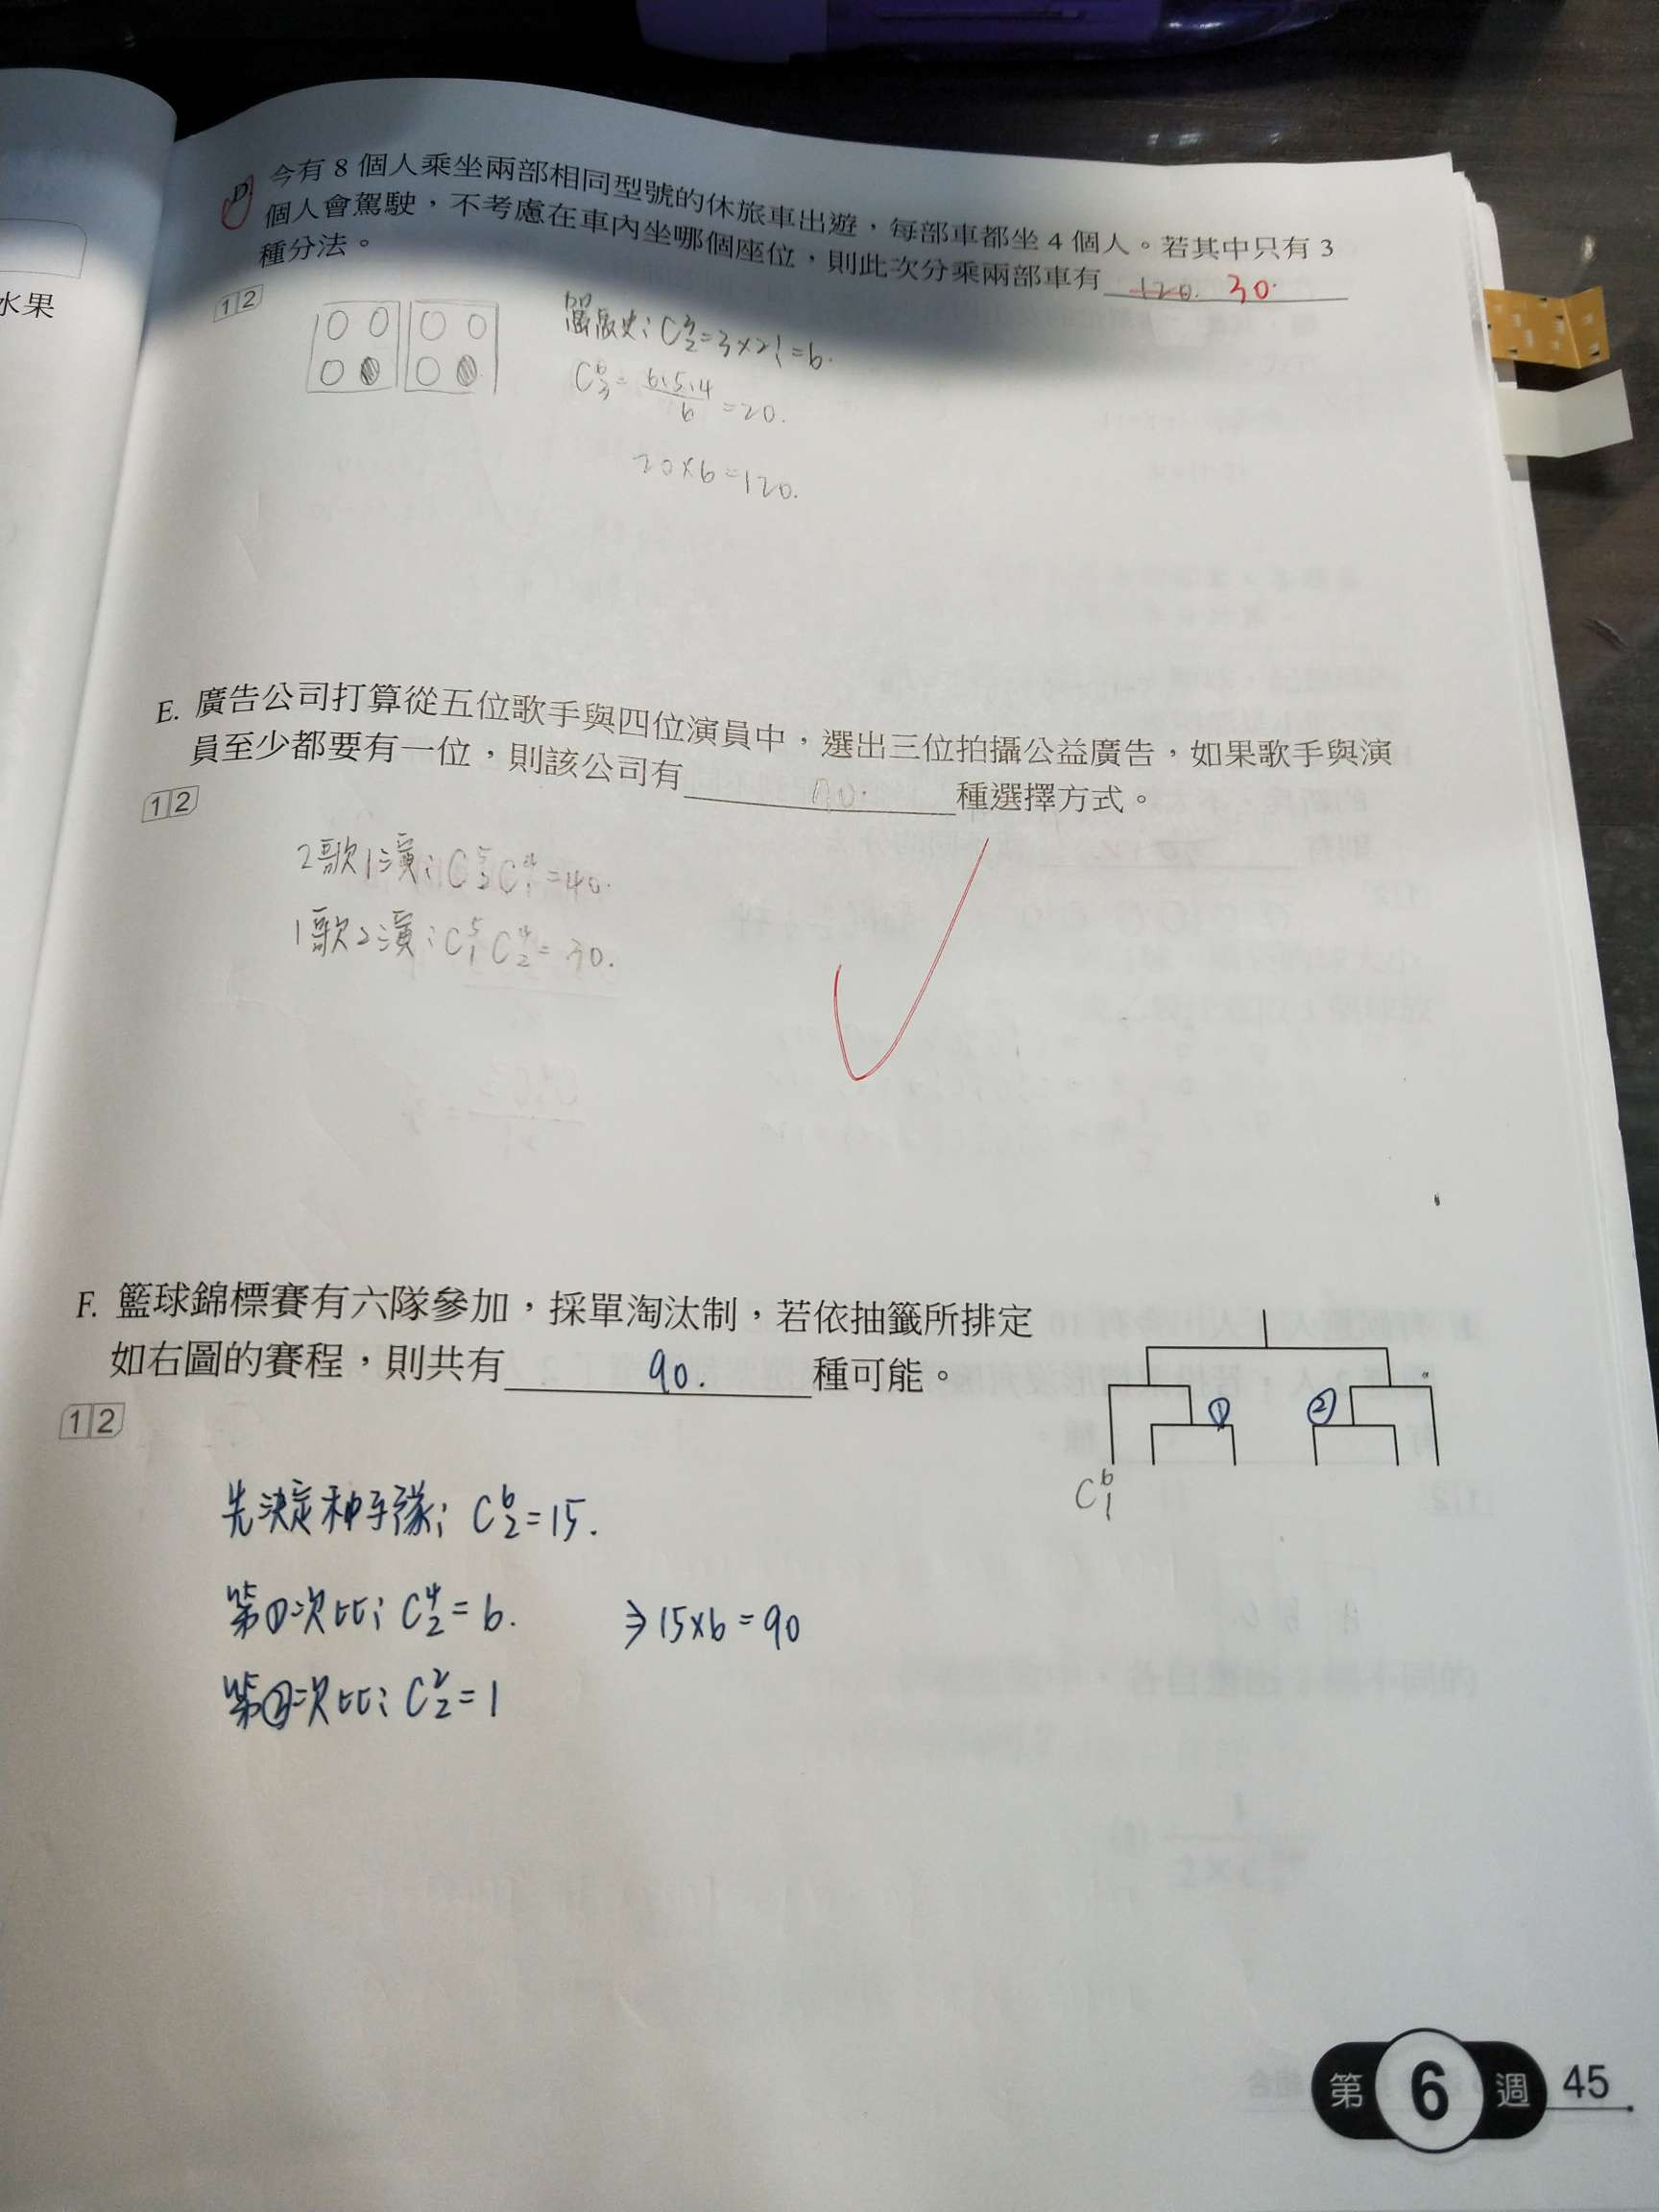 水果
D. 今有 8 個人乘坐兩部相同型號的休旅車出遊,每部車都坐 4 個人。若其中只有 3
個人會駕駛,不考慮在車內坐哪個座位,則此次分乘兩部車有 120. 30.
種分法。
12
C³₂=3×2!=6.
C⁶₃=6.5.4/6=20.
20×6=120.
E. 廣告公司打算從五位歌手與四位演員中,選出三位拍攝公益廣告,如果歌手與演
員至少都要有一位,則該公司有 70. 種選擇方式。
12
2歌1演:C⁵₂C⁴₁=40.
1歌2演:C⁵₁C⁴₂=30.
F. 籃球錦標賽有六隊參加,採單淘汰制,若依抽籤所排定
如右圖的賽程,則共有 90. 種可能。
12
① ②
C⁶₁
先決定种子隊:C⁶₂=15.
第①次比:C⁴₂=6. ⇒15×6=90
第②次比:C²₂=1
第 6 週 45